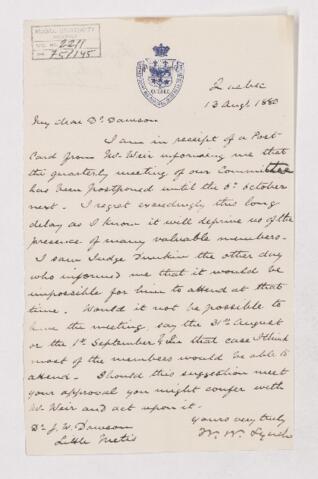 McGILL UNIVERSITY
ACC. NO. 2211
REF. 75/145
Quebec
13 Augt. 1880
My dear Dr. Dawson
I am in receipt of a Post-
Card from Mr. Weir informing me that
the quarterly meeting of our Committee
has been postponed until the 6th October
next. I regret exceedingly this long
delay as I know it will deprive us of the
presence of many valuable members.
I saw Judge Dunkin the other day
who informed me that it would be
impossible for him to attend at that
time. Would it not be possible to
have the meeting, say the 31st August
or the 1st September & in that case I think
most of the members would be able to
attend. Should this suggestion meet
your approval you might confer with
Mr. Weir and act upon it.
Yours very truly
W. W. Lynch
Dr. J. W. Dawson
Little Metis